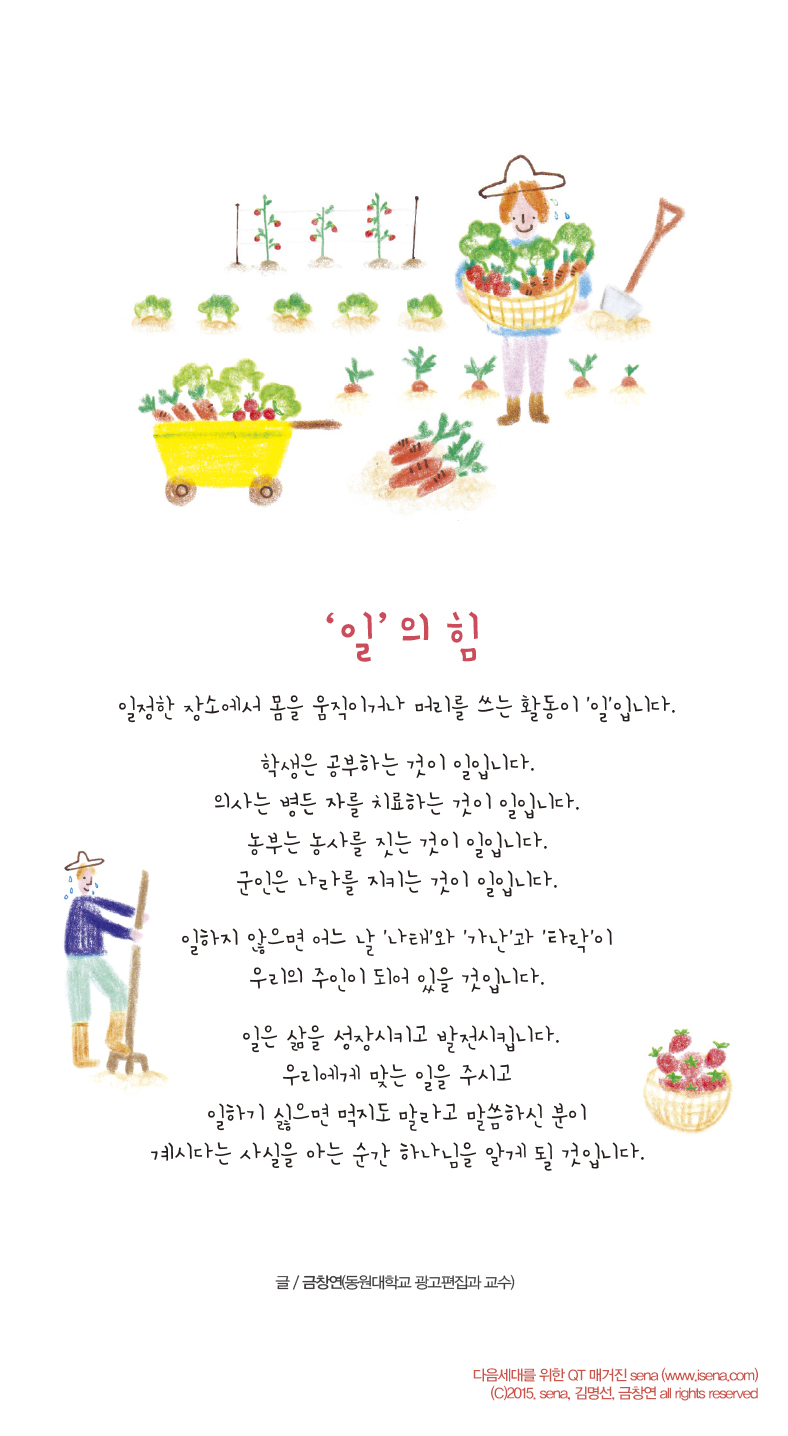 ‘일’의 힘
일정한 장소에서 몸을 움직이거나 머리를 쓰는 활동이 '일'입니다.
학생은 공부하는 것이 일입니다.
의사는 병든 자를 치료하는 것이 일입니다.
농부는 농사를 짓는 것이 일입니다.
군인은 나라를 지키는 것이 일입니다.
일하지 않으면 어느 날 '나태'와 '가난'과 '타락'이
우리의 주인이 되어 있을 것입니다.
일은 삶을 성장시키고 발전시킵니다.
우리에게 맞는 일을 주시고
일하기 싫으면 먹지도 말라고 말씀하신 분이
계시다는 사실을 아는 순간 하나님을 알게 될 것입니다.
글 / 금창연(동원대학교 광고편집과 교수)
다음세대를 위한 QT 매거진 sena (www.isena.com)
(C)2015, sena, 김명선, 금창연 all rights reserved